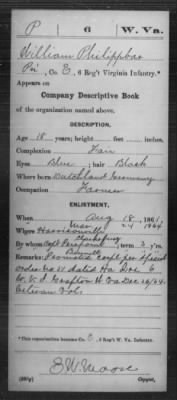 P 6 W. Va.
William Philippbar
Pri , Co. E, 6 Reg't Virginia Infantry.*
Appears on
Company Descriptive Book
of the organization named above.
DESCRIPTION.
Age 18 years; height feet inches.
Complexion Fair
Eyes Blue ; hair Black
Where born Dutchland Germany
Occupation Farmer
ENLISTMENT.
When Aug 18 , 1861.
Mar 24 1864
Where Harrisonville
Clarksburg
By whom Capt Pierpoint ; term 3 y'rs.
Remarks: Promoted corpl per Special
order no 11 dated
Veteran Vol.
*This organization became Co. E , 6 Reg't W. Va. Inf.
E W Moore
Copyist.